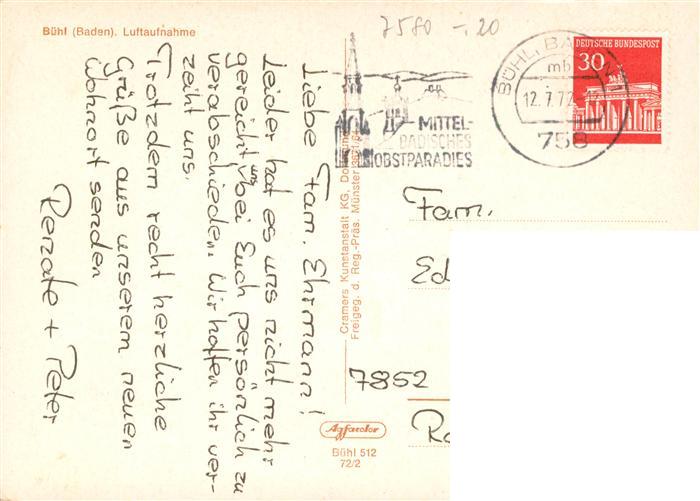 Bühl (Baden). Luftaufnahme
7580 -.20
Liebe Fam. Ehrmann!
Leider hat es uns nicht mehr
gereicht, uns bei Euch persönlich zu
verabschieden. Wir hoffen ihr ver-
zeiht uns.
Trotzdem recht herzliche
Grüße aus unserem neuen
Wohnort senden
Renate + Peter
Cramers Kunstanstalt KG, Dortmund
Freigeg. d. Reg.-Präs. Münster
Agfacolor
Bühl 512
72/2
MITTEL-
BADISCHES
OBSTPARADIES
BÜHL, BADEN 1
mb
12.7.72
758
DEUTSCHE BUNDESPOST
30
Fam.
Ed
7852